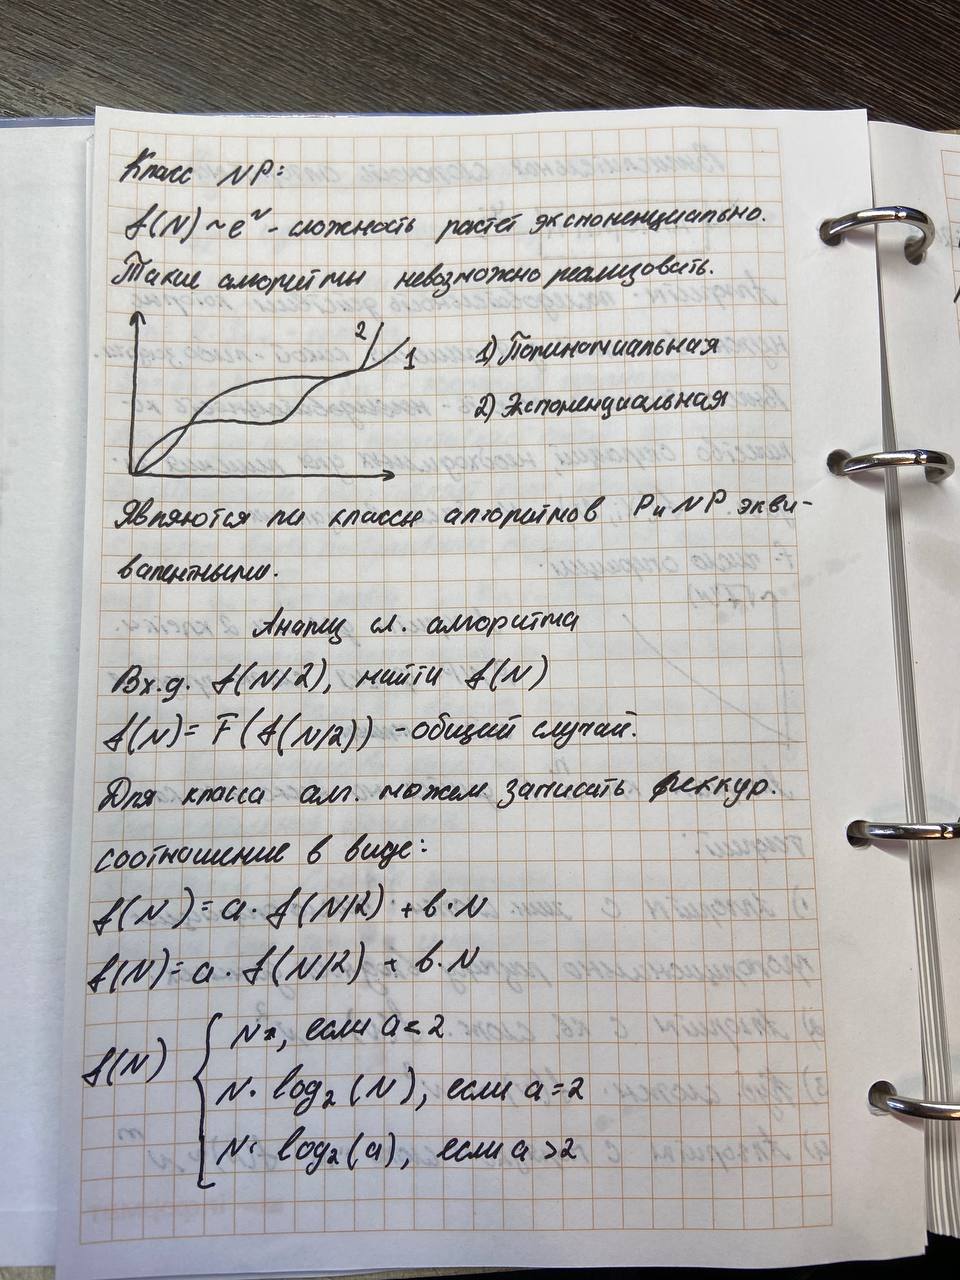 Класс NP:
f(N) ~ e^N - сложность растет экспоненциально.
Такие алгоритмы невозможно реализовать.
2
1
1) Полиномиальная
2) Экспоненциальная
Являются ли классы алгоритмов P и NP экви-
валентными.
Анализ сл. алгоритма
Вх.д. f(N/2), найти f(N)
f(N) = F(f(N/2)) - общий случай.
Для класса алг. можем записать реккур.
соотношение в виде:
f(N) = a · f(N/2) + b · N
f(N) = a · f(N/2) + b · N
f(N) { N, если a < 2
N · log₂(N), если a = 2
N · log₂(a), если a > 2